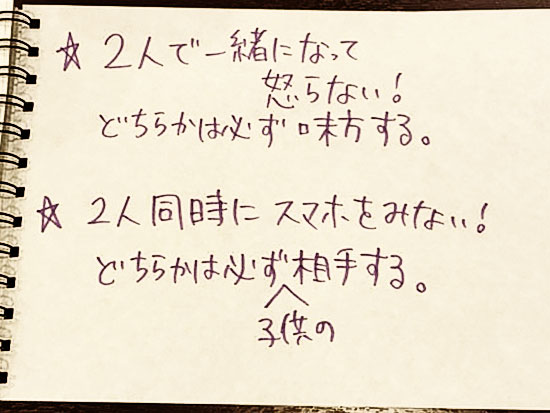 ☆ 2人で一緒になって
怒らない!
どちらかは必ず味方する。
☆ 2人同時にスマホをみない!
どちらかは必ず相手する。
子供の